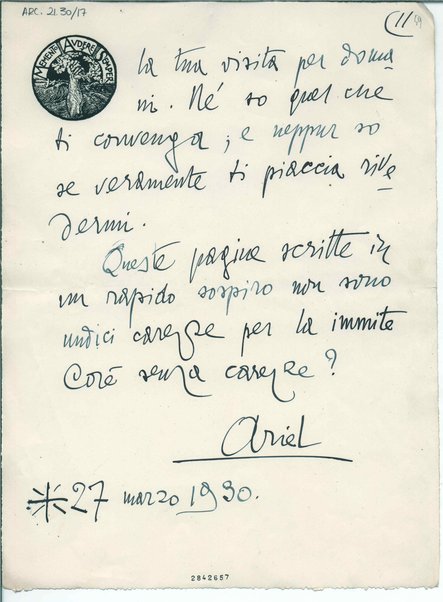 ARC. 21.30/17
11
MEMENTO AUDERE SEMPER
la tua visita per doma
ni. Né so quel che
ti convenga; e neppur so
se veramente ti piaccia rive
dermi.
Queste pagine scritte in
un rapido sospiro non sono
undici carezze per la immite
Corè senza carezze?
Ariel
27 marzo 1930.
2842657